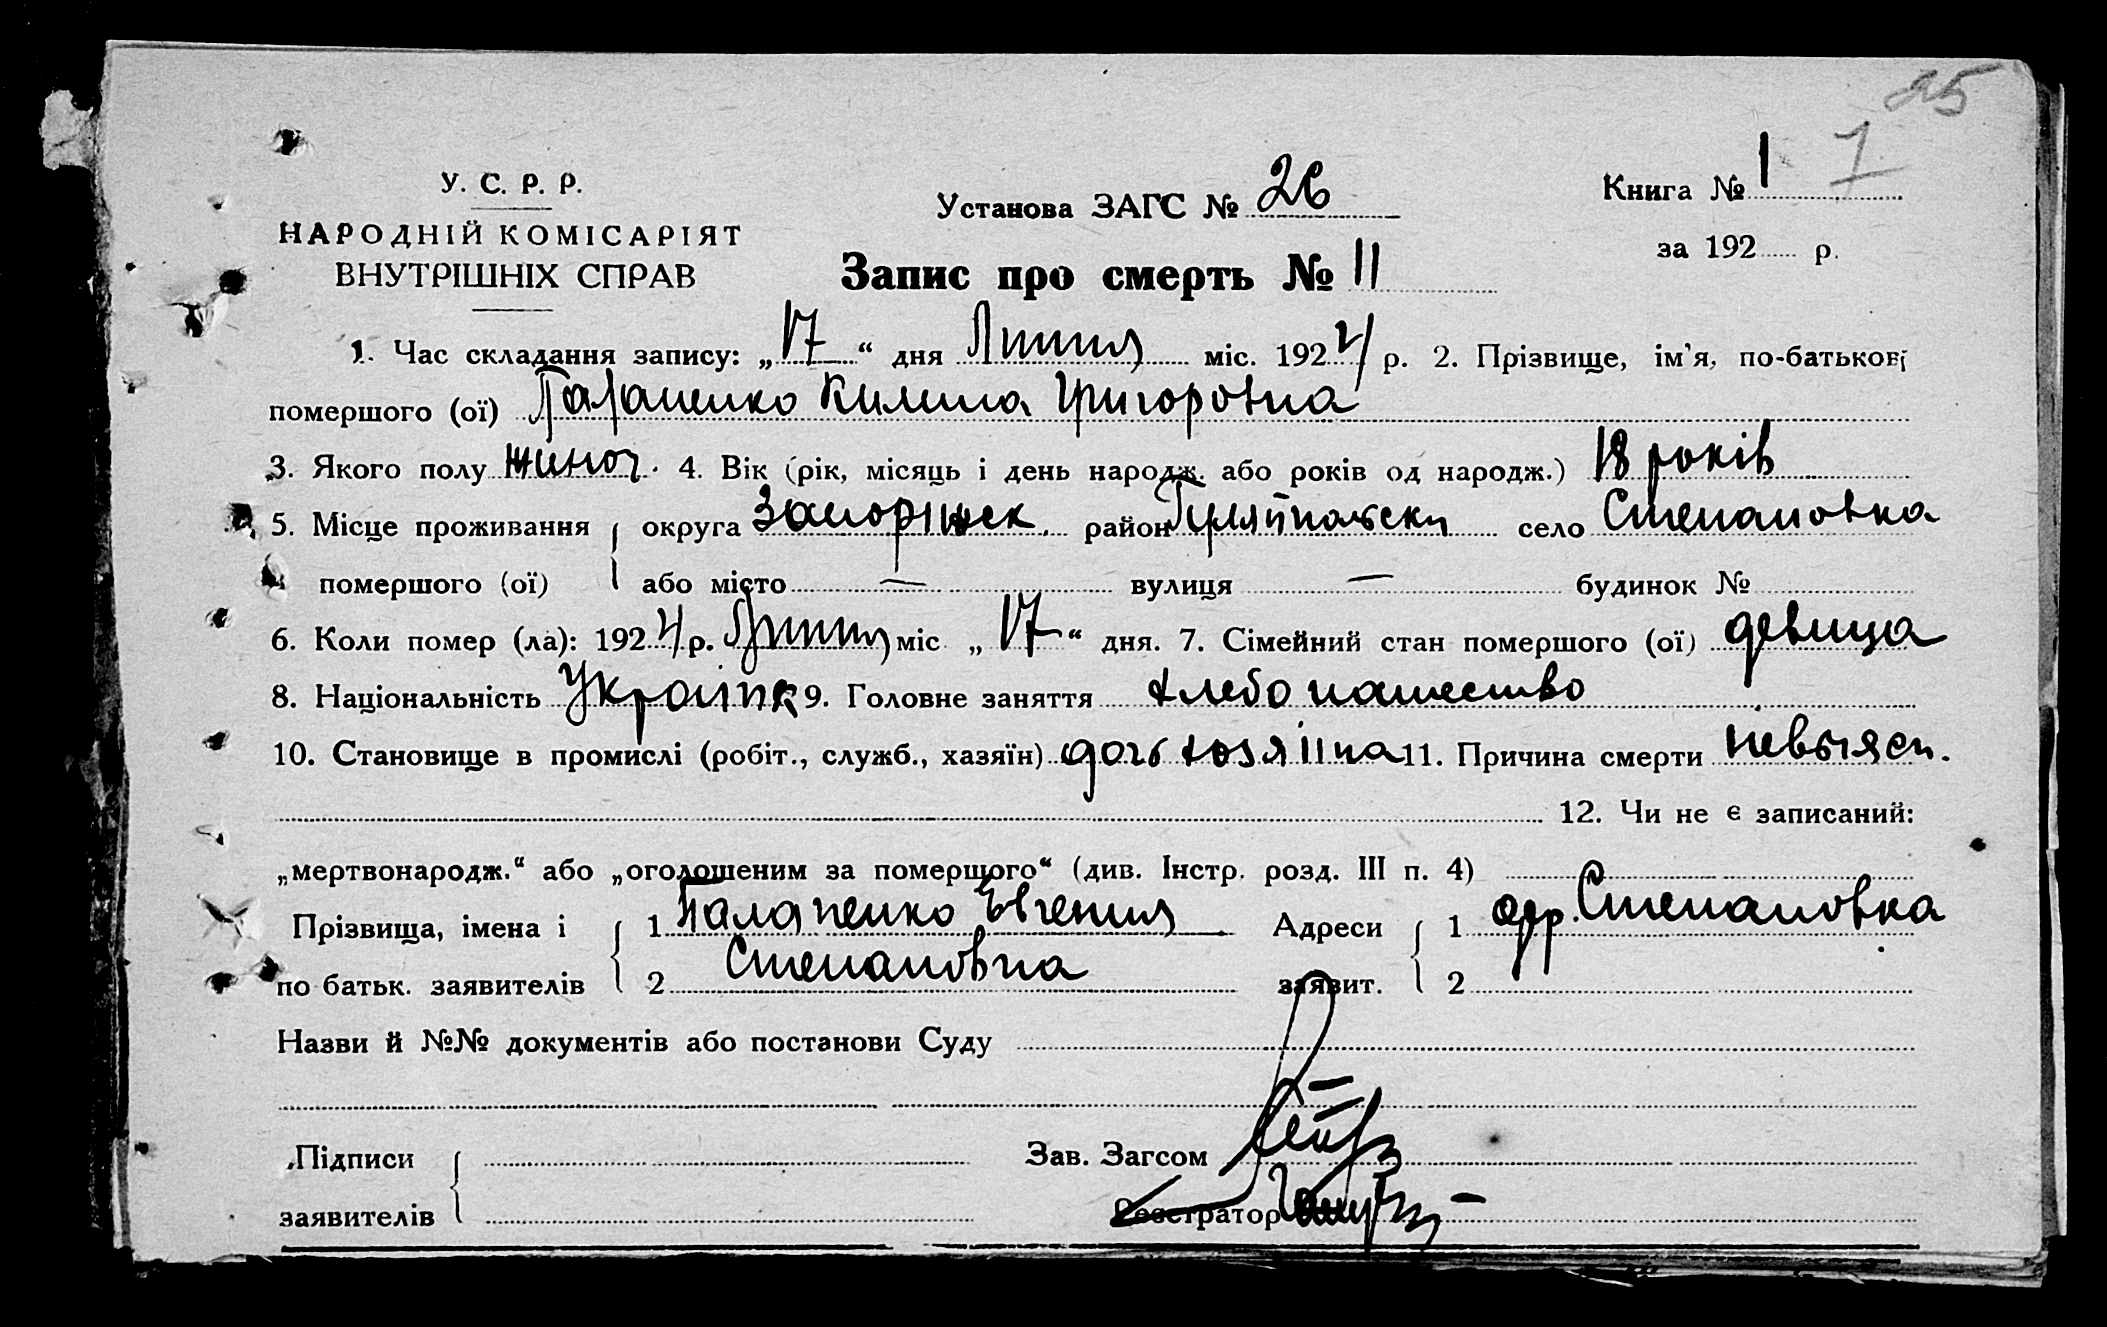 25
У. С. Р. Р.
НАРОДНІЙ КОМІСАРІЯТ
ВНУТРІШНІХ СПРАВ
Установа ЗАГС № 26
Книга № 1 7
за 192 р.
Запис про смерть № 11
1. Час складання запису: „17“ дня Липня міс. 1924 р. 2. Прізвище, ім'я, по-батькові
помершого (ої) Килина Григоровна
3. Якого полу жиноч. 4. Вік (рік, місяць і день народж. або років од народж.) 18 років
5. Місце проживання округа Запоріжск. район село Степановка
помершого (ої) або місто — вулиця — будинок №
6. Коли помер (ла): 1924 р. Липня міс „17“ дня. 7. Сімейний стан помершого (ої) девица
8. Національність Україн 9. Головне заняття хлебопашество
10. Становище в промислі (робіт., служб., хазяїн) дочь хозяїіна 11. Причина смерти невыясн.
12. Чи не є записаний:
„мертвонародж.“ або „оголошеним за помершого“ (див. Інстр. розд. III п. 4)
Прізвища, імена і 1 Палапенко Евгения Адреси 1 дер. Степановка
по батьк. заявителів 2 Степановна заявит. 2
Назви й №№ документів або постанови Суду
Підписи
заявителів
Зав. Загсом
Реєстратор